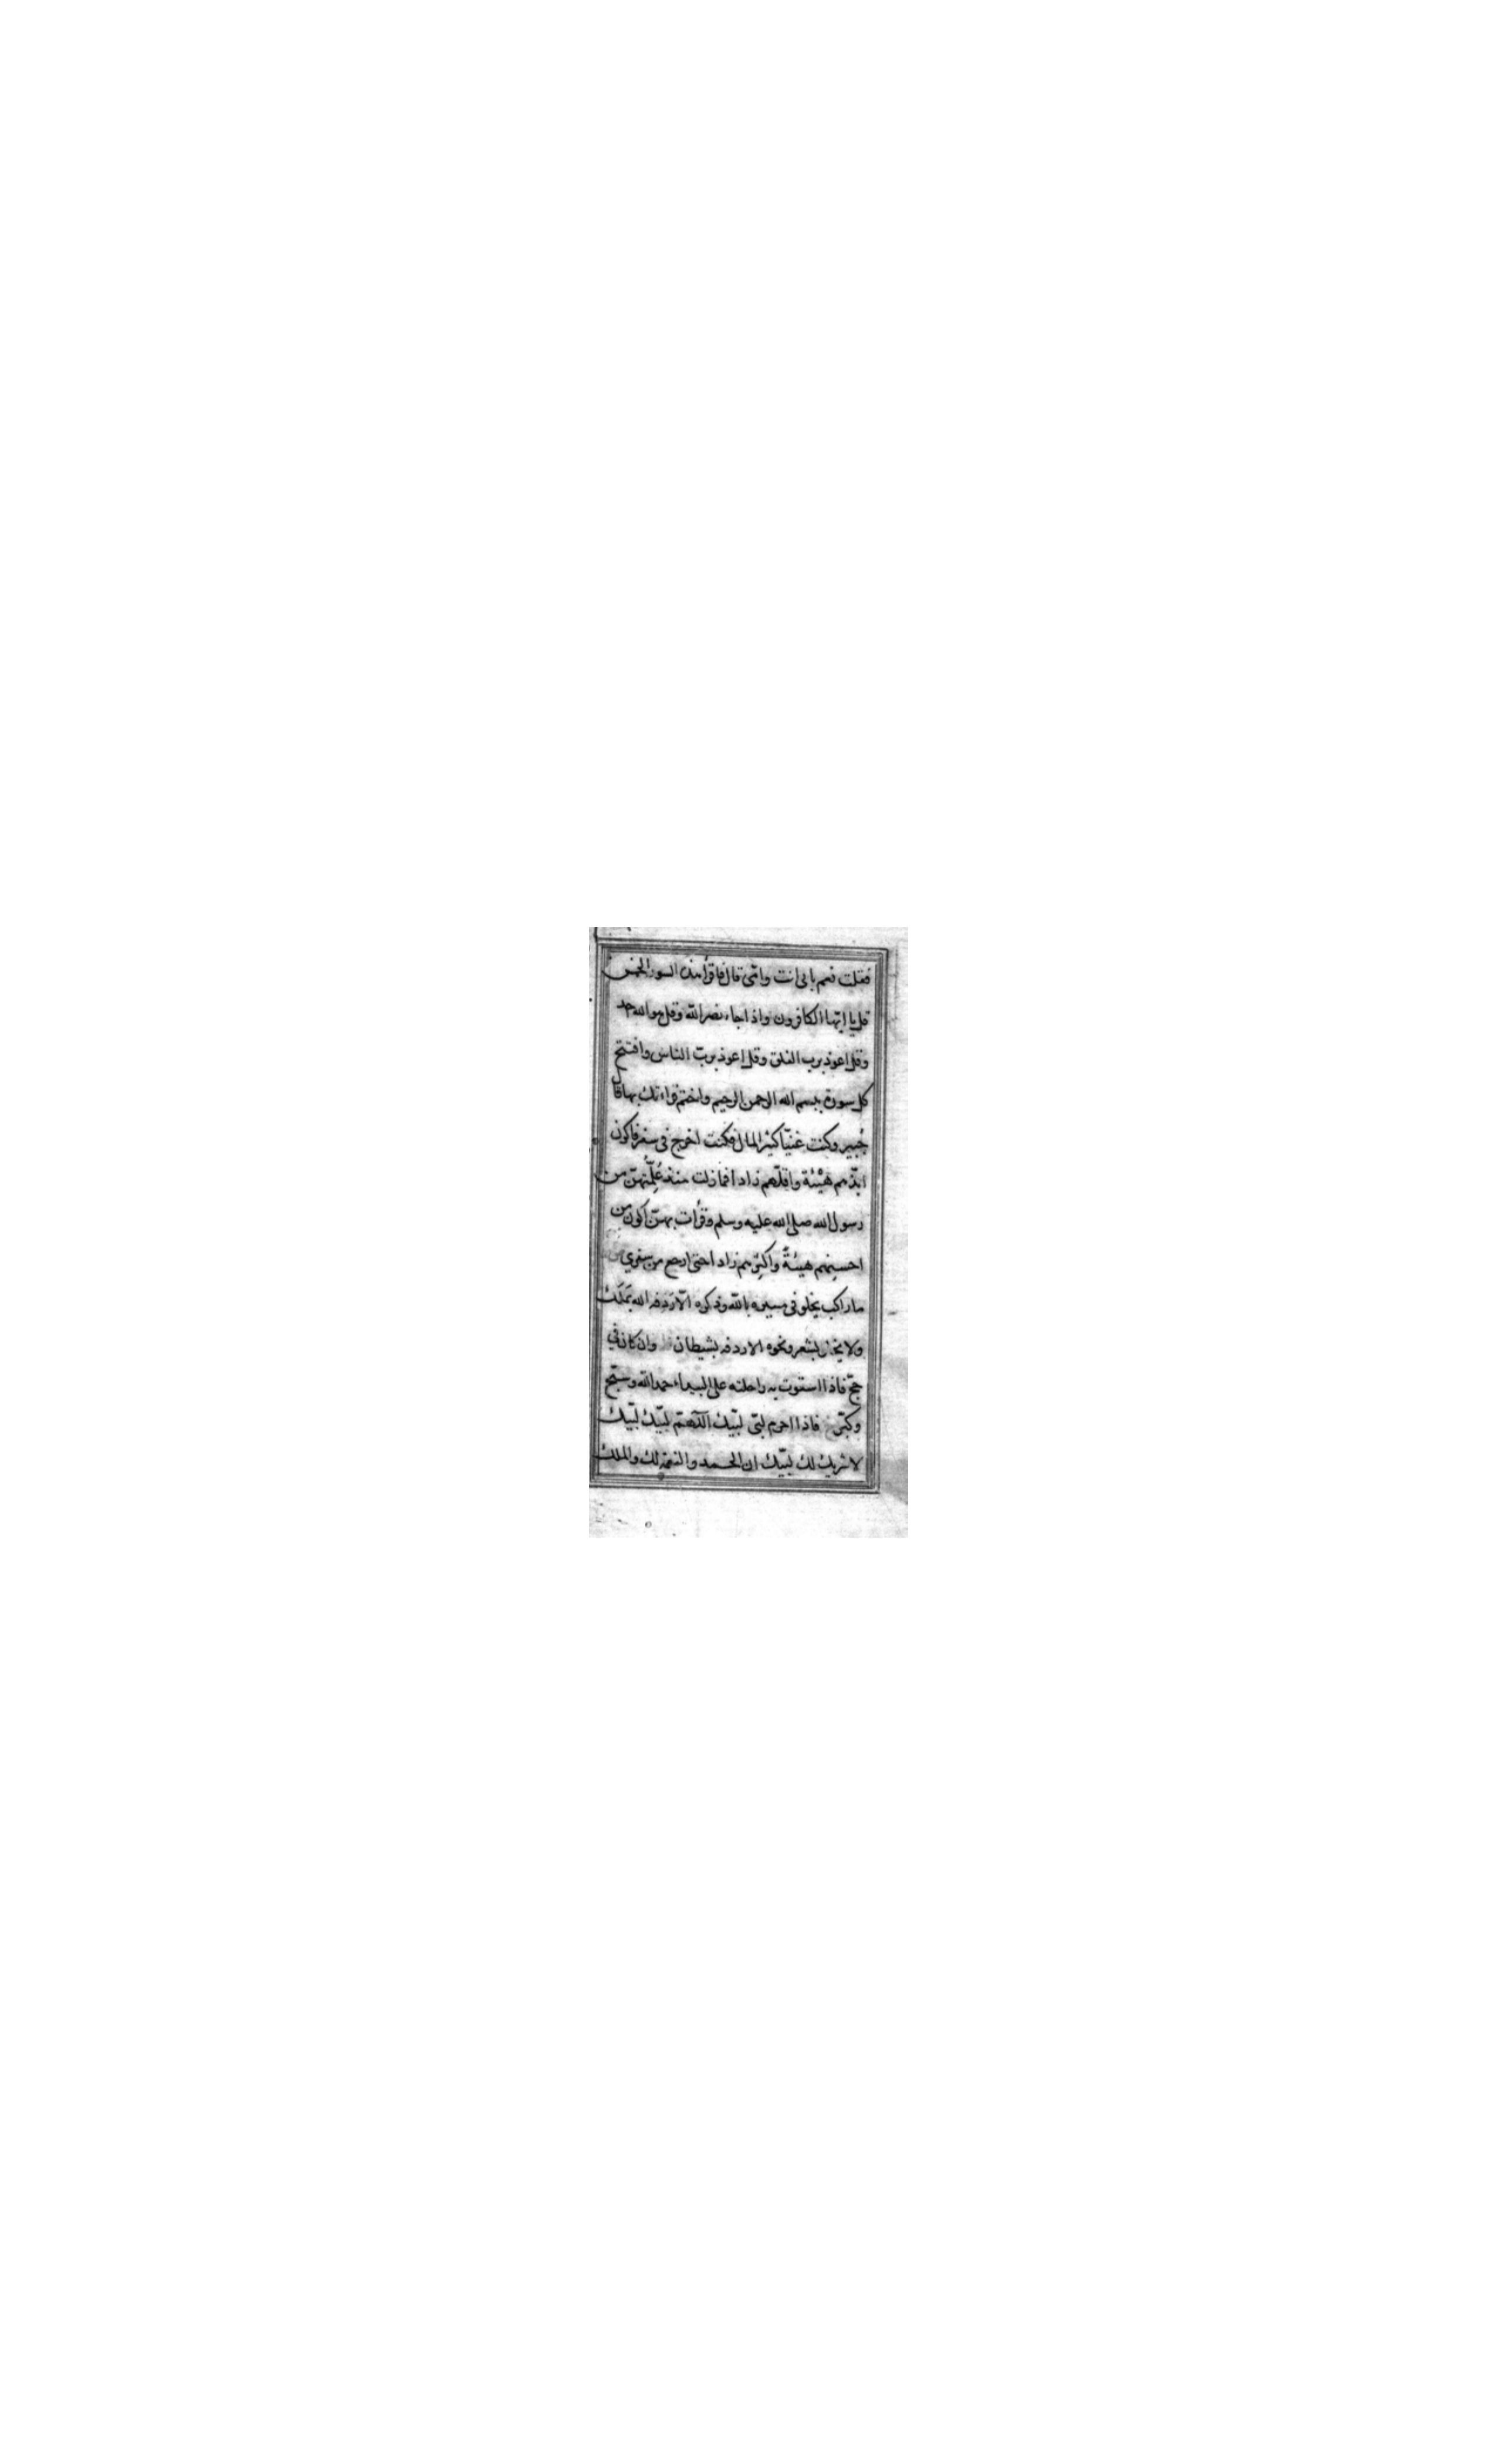 فقلت نعم بابى انت وامّى قال فاقرأ هذه السور الخمس
قل يا ايّها الكافرون واذا جاء نصر الله وقل هو الله احد
وقل اعوذ برب الفلق وقل اعوذ بربّ الناس وافتتح
كل سورة ببسم الله الرحمن الرحيم واختم قراءتك بها قال
جُبير وكنت غنيّا كثير المال فكنت اخرج فى سفر فاكون
ابذّهم هيْئة واقلّهم زادا فما زلت منذ عُلّمتُهنّ من
رسول الله صلى الله عليه وسلم وقرأت بهنّ اكون من
احسنهم هيئةً واكثرهم زادا حتى ارجع من سفري
ما راكب يخلو فى مسيره بالله وذكره الّا ردفه الله بمَلَك
ولا يخلو بشعر ونحوه الا ردفه بشيطان وان كان في
حجّ فاذا استوت به راحلته على البيداء حمد الله وسبّح
وكبّر فاذا احرم لبّى لبّيك اللّهمّ لبّيك لبّيك
لا شريك لك لبّيك ان الحمد والنعمة لك والملك